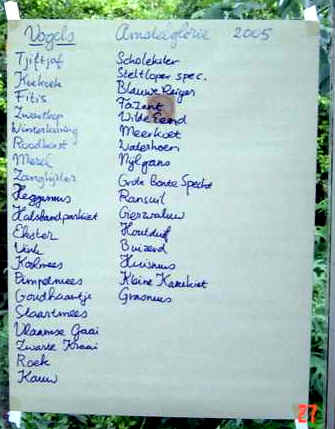 Vogels Amstelglorie 2005
Tjiftjaf
Koekoek
Fitis
Zwartkop
Winterkoning
Roodborst
Merel
Zanglijster
Heggemus
Halsbandparkiet
Ekster
Vink
Koolmees
Pimpelmees
Goudhaantje
Staartmees
Vlaamse Gaai
Zwarte Kraai
Roek
Kauw
Scholekster
Steltloper spec.
Blauwe Reiger
Fazant
Wilde Eend
Meerkoet
Waterhoen
Nijlgans
Grote Bonte Specht
Ransuil
Gierzwaluw
Houtduif
Buizerd
Huismus
Kleine Karekiet
Grasmus
27